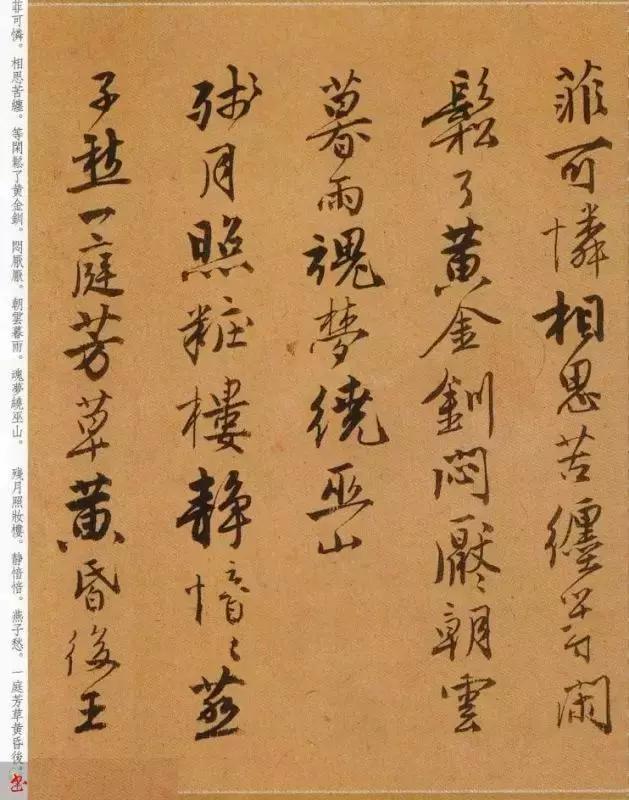 菲可憐相思苦纏等闲
鬆了黄金釧悶厭厭朝雲
暮雨魂梦繞巫山
残月照粧樓静愔愔燕
子愁一庭芳草黄昏後王
菲可憐。相思苦纏。等閑鬆了黄金釧。悶厭厭。朝雲暮雨。魂夢繞巫山。 殘月照妝樓。静愔愔。燕子愁。一庭芳草黄昏後。